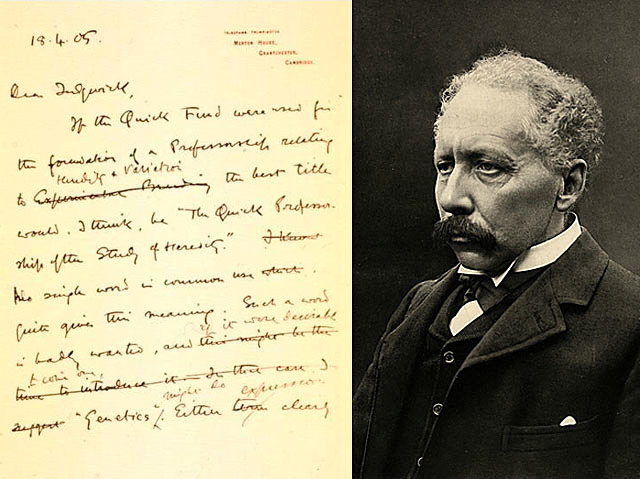 18.4.05.
MERTON HOUSE,
GRANTCHESTER,
CAMBRIDGE.
Dear Sedgwick,
If the Quick Fund were used for
the foundation of a Professorship relating
Heredity & Variation
to Experimental Breeding the best title
would, I think, be "The Quick Professor-
ship of the Study of Heredity." I know
No single word in common use which.
quite gives this meaning. Such a word
if it were desirable
is badly wanted, and this might be the
to coin one,
time to introduce it. In that case I
might do
suggest "Genetics". Either term clearly